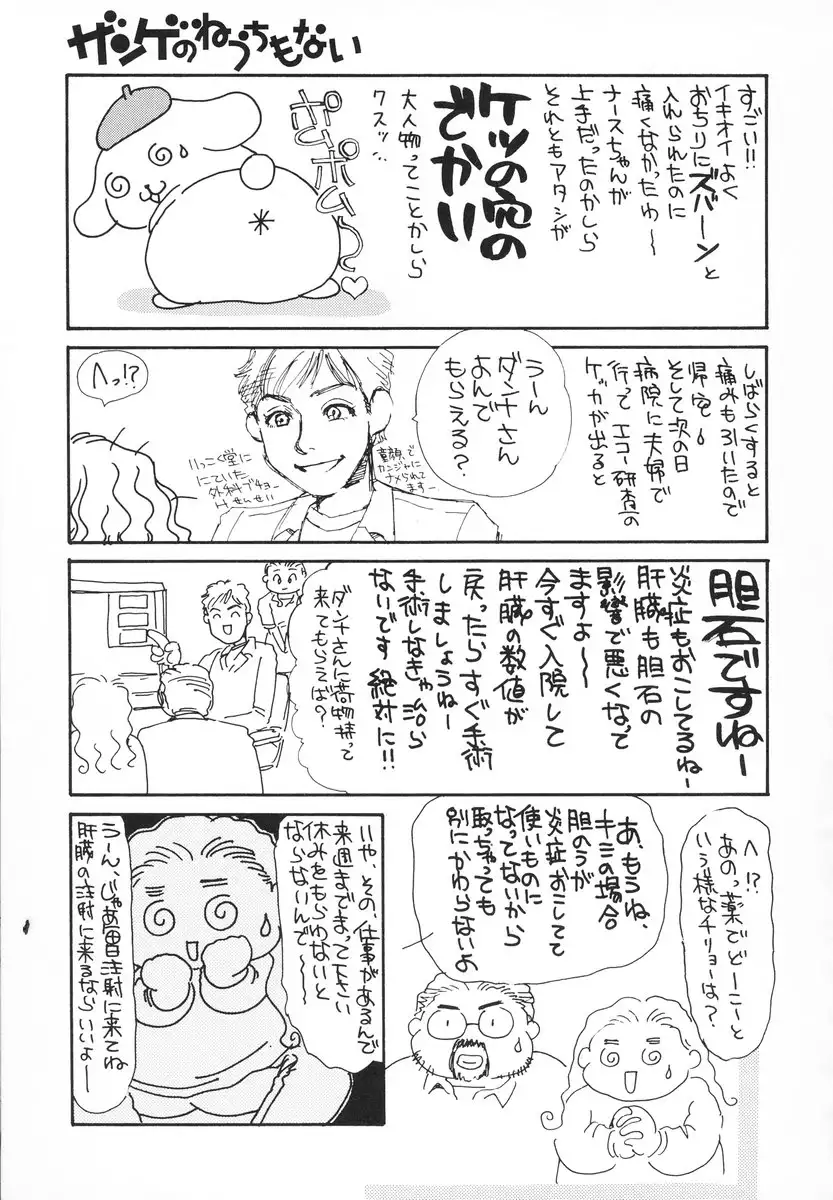 ザンゲのねうちもない
すごい!!
イキオイよく
おちりにズバーンと
入れられたのに
痛くなかったゆ〜
ナースちゃんが
上手だったのかしら
それともアタシが
ケツの穴の
でかい
大人物ってことかしら
クスッ…
ポムポム〜♡
しばらくすると
痛みも引いたので
帰宅。
そして次の日
病院に夫婦で
行って エコー研査の
ケッカが出ると
うーん
ダンナさん
よんで
もらえる?
童顔で
カンジャに
ナメられて
ますー
いっこく堂に
にていた
外科ブチョー
せんせい
へっ!?
胆石ですねー
炎症もおこしてるねー
肝臓も胆石の
影響で悪くなって
ますよ〜
今すぐ入院して
肝臓の数値が
戻ったらすぐ手術
しましょうねー
手術しなきゃ治ら
ないです 絶対に!!
ダンナさんに荷物持って
来てもらえば?
へ!?
あのっ薬でどーこーと
いう様なチリョーは?
あ、もうね、
キミの場合
胆のうが
炎症おこしてて
使いものに
なってないから
取っちゃっても
別にかわらないよ
いや、その、仕事があるんで
来週までまって下さい
休みをもらわないと
ならないんで〜
うーん、じゃあ毎日注射に来てね
肝臓の注射に来るならいいよー